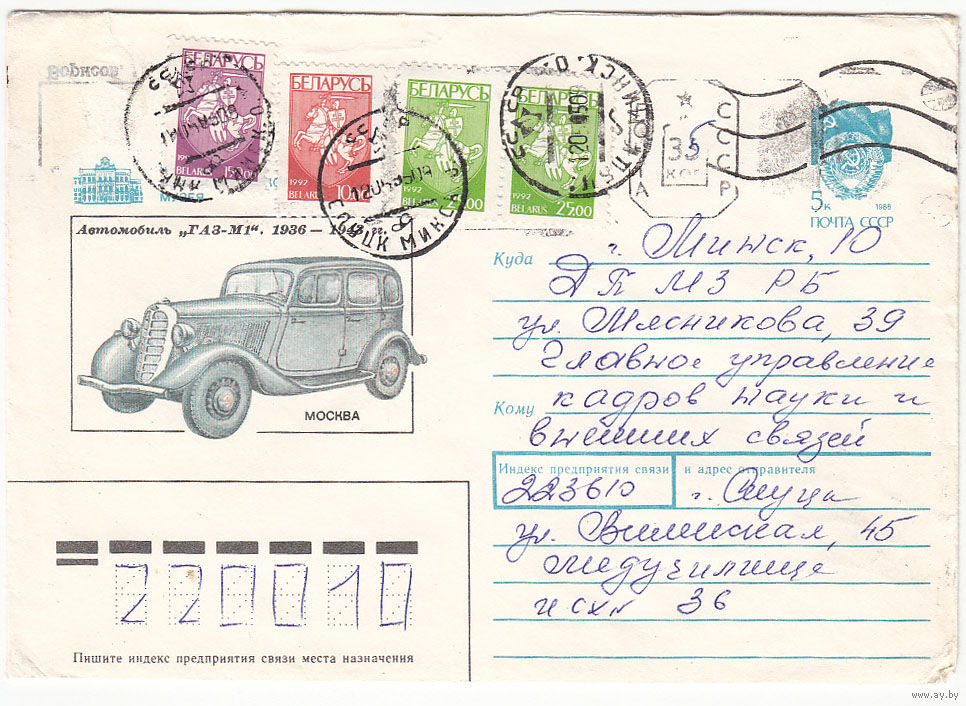 Борисов
БЕЛАРУСЬ
BELARUS
БЕЛАРУСЬ
1992
BELARUS
БЕЛАРУСЬ
1992
BELARUS 25.00
БЕЛАРУСЬ
1992
BELARUS 25.00
С
С
35 С
КОП
А Р
5к 1988
ПОЧТА СССР
Автомобиль „ГАЗ-М1". 1936 — гг.
МОСКВА
Куда г. Минск, 10
ДП МЗ РБ
ул. Мясникова, 39
Главное управление
Кому кадров науки и
внешних связей
Индекс предприятия связи и адрес отправителя
223610 г. Слуцк
ул. Виленская, 45
Медучилище
исх 36
220010
Пишите индекс предприятия связи места назначения
www.ay.by